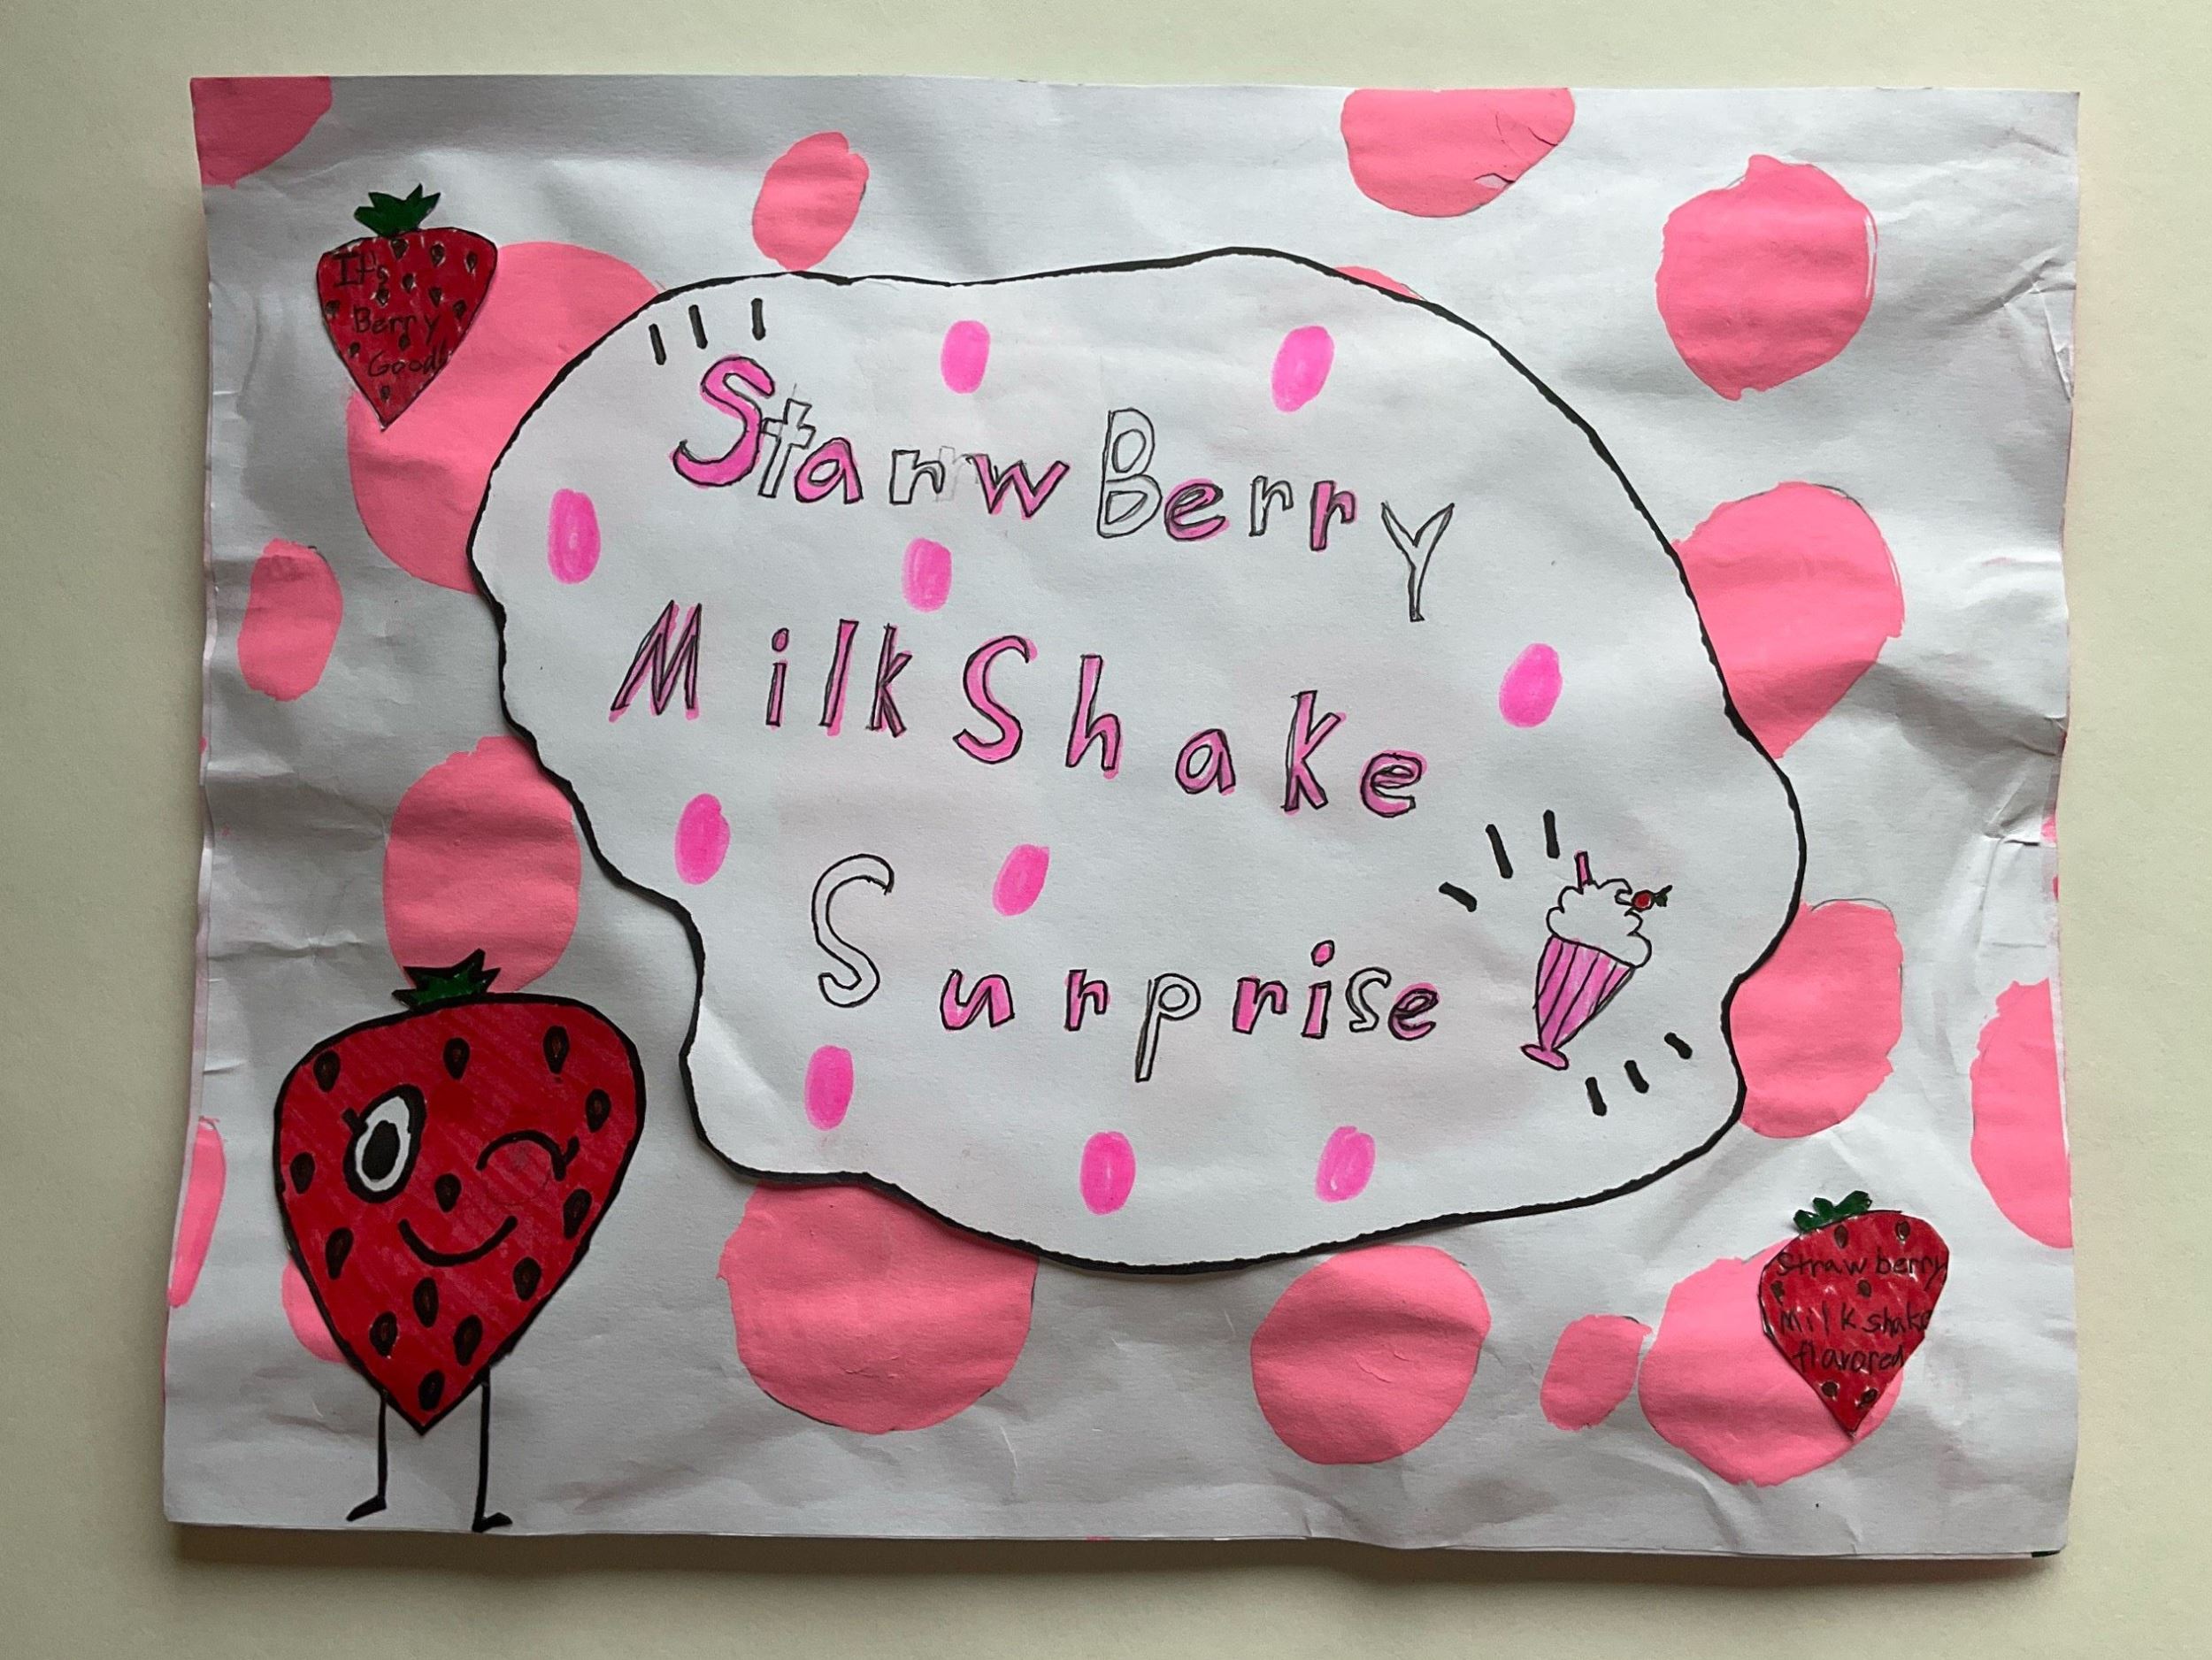 It's
Berry
Good!
StarwBerry
MilkShake
Surprise
Strawberry
Milkshake
flavored